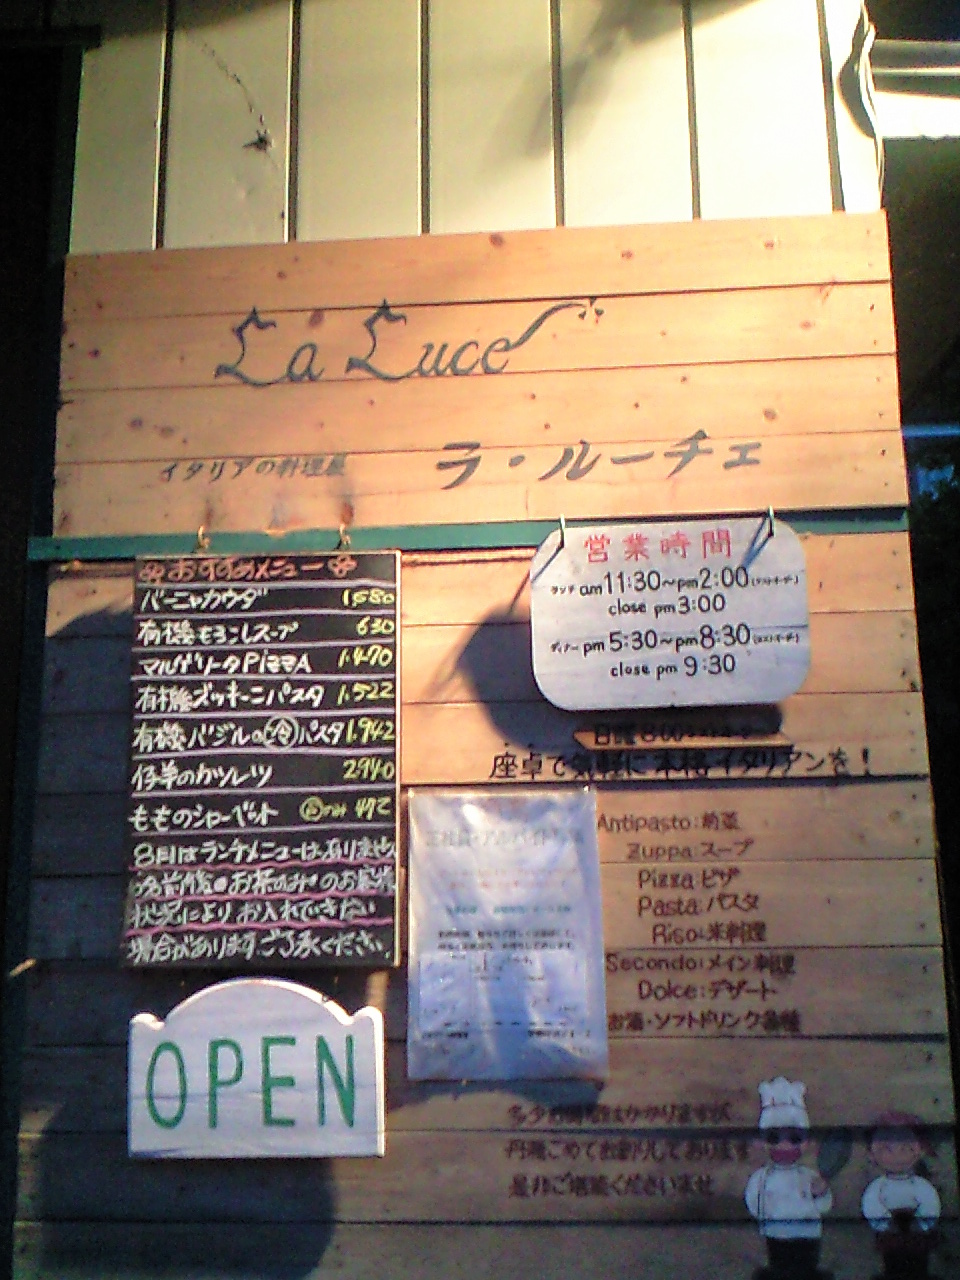 La Luce
イタリアの料理屋
ラ・ルーチェ
おすすめメニュー
バーニャカウダ 1,580
有機もろこしスープ 630
マルゲリータPizzA 1,470
有機ズッキーニパスタ 1,522
有機バジルの冷パスタ 1,942
仔羊のカツレツ 2940
もものシャーベット のみ 472
8月はランチメニューはありません
お茶のみのお客様
状況によりお入れできない
場合があります。ご了承ください。
OPEN
営業時間
ランチ am11:30~pm2:00(ラストオーダー)
close pm3:00
ディナー pm5:30~pm8:30(ラストオーダー)
close pm 9:30
日曜8:00
座卓で気軽に本格イタリアンを!
正社員・アルバイト
Antipasto:前菜
Zuppa:スープ
Pizza:ピザ
Pasta:パスタ
Riso:米料理
Secondo:メイン料理
Dolce:デザート
お酒・ソフトドリンク各種
多少お時間はかかりますが
丹精こめてお創りしております
是非ご堪能くださいませ